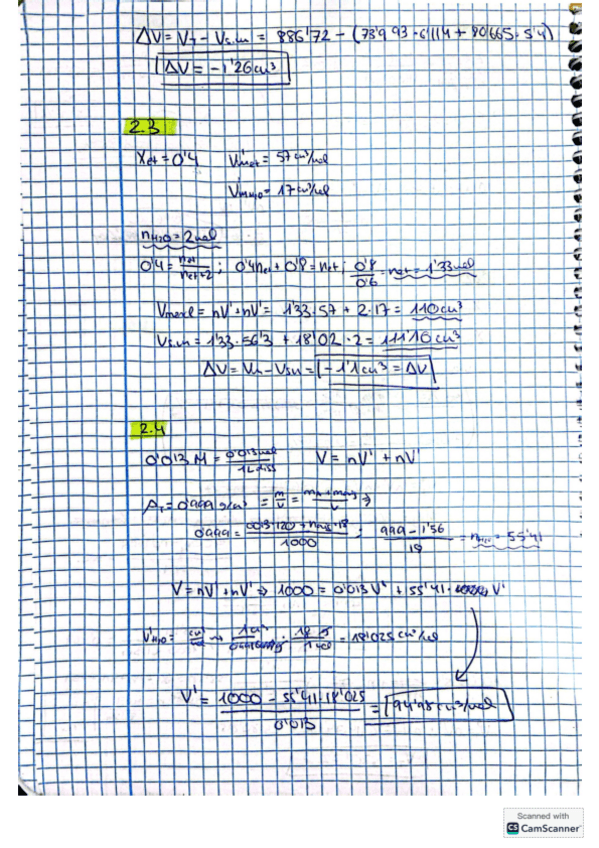 ΔV = V_T − V_s.m = 886'72 − (73'993 · 6'114 + 80'665 · 5'4)
ΔV = −1'26 cm³
2.3
X_et = 0'4    V'_met = 57 cm³/mol
V'_mH₂O = 17 cm³/mol
n_H₂O = 2 mol
0'4 = n_et / n_et+2 ; 0'4n_et + 0'8 = n_et ; 0'8 / 0'6 = n_et = 1'33 mol
V_mezcl = nV' + nV' = 1'33 · 57 + 2 · 17 = 110 cm³
V_s.m = 1'33 · 56'3 + 18'02 · 2 = 111'10 cm³
ΔV = V_M − V_SM = −1'1 cm³ = ΔV
2.4
0'013 M = 0'013 mol / 1L diss    V = nV' + nV'
= m / V =
0'999 = 0013·120 + n · 18 / 1000 ; 999 − 1'56 / 18 = n_H₂O = 55'41
V = nV' + nV' ⇒ 1000 = 0'013 V' + 55'41 · V'
V'_H₂O = cm³ / mol → 1 cm³ / · 18 g / 1 mol = 18'025 cm³/mol
V' = 1000 − 55'41·18'025 / 0'013 = 94'98 cm³/mol
Scanned with
CS CamScanner